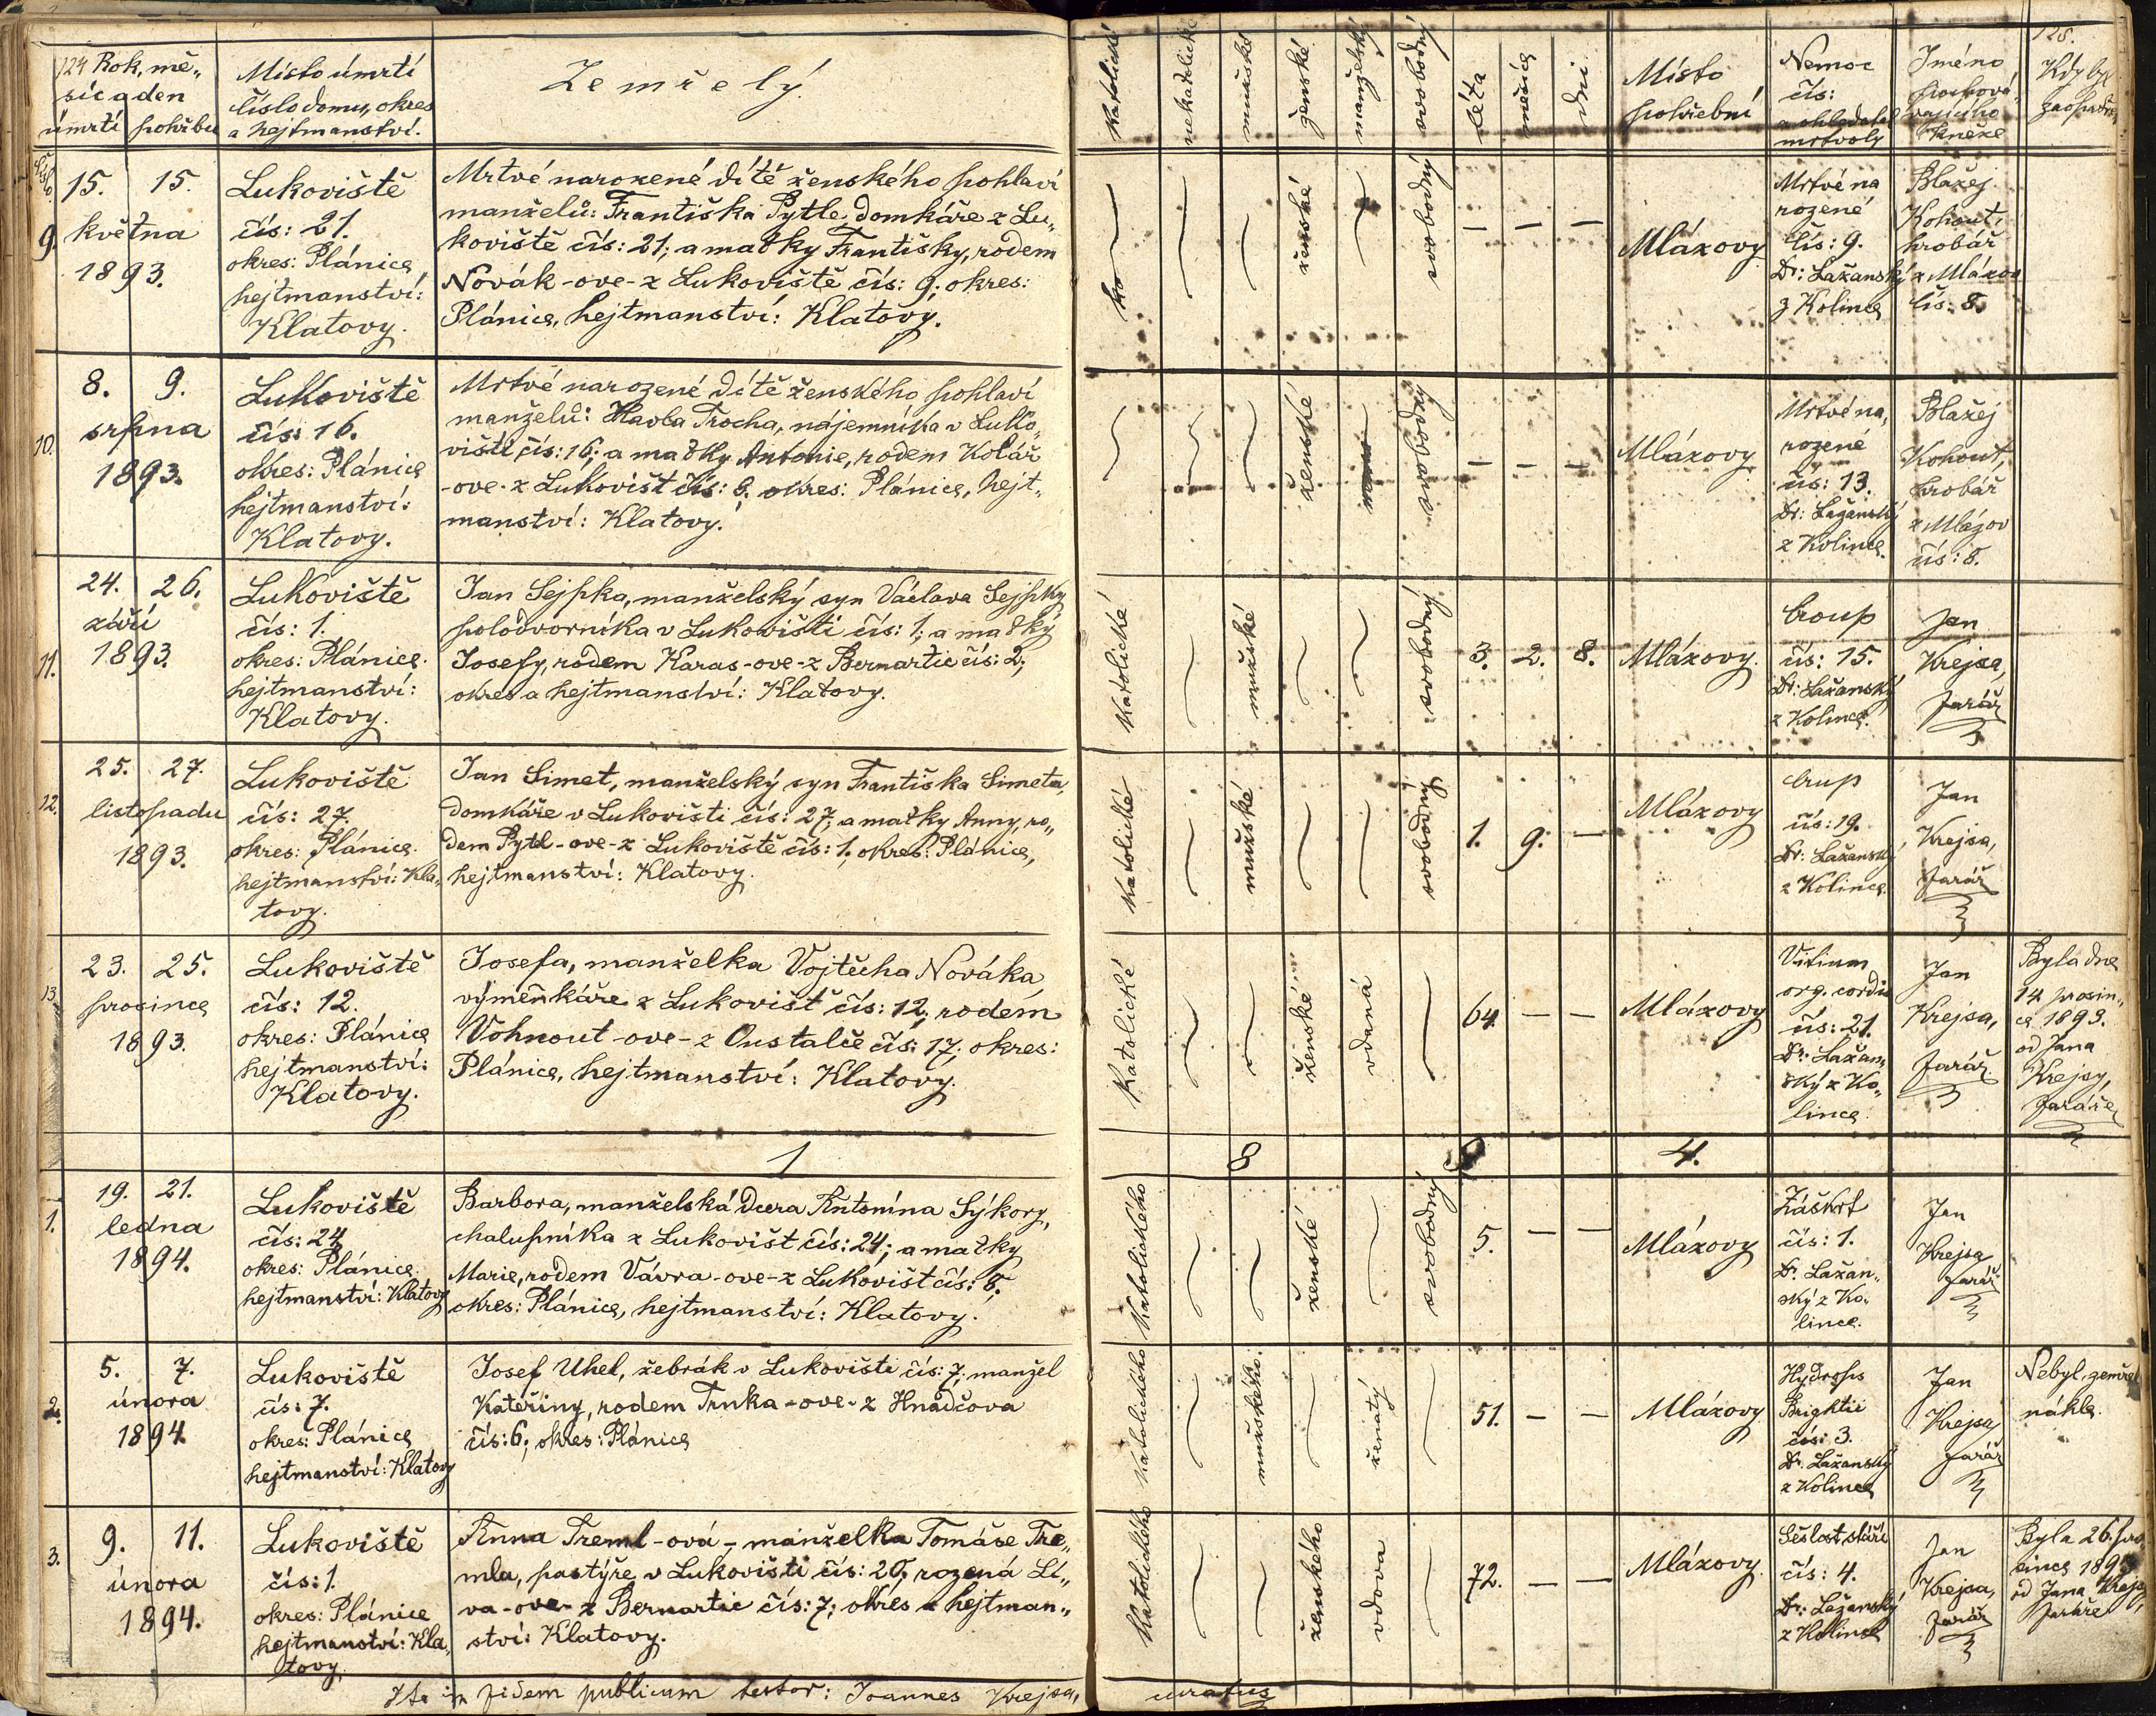 124 Rok, mě„
síc a den
úmrtí pohřbu
Místo úmrtí
číslo domu, okres
a hejtmanství.
Zemřelý.
katolické
nekatolické
mužské
ženské
manželský
svobodný
léta
měsíce
dni
Místo
pohřební
Nemoc
čís:
a ohledatel
mrtvoly
Jméno
pochová„
vajícího
kněze
125.
Kdy byl
zaopatřen
Číslo
9.
15. 15.
května
1893.
Lukoviště
čís: 21.
okres: Plánice
hejtmanství:
Klatovy.
Mrtvé narozené dítě ženského pohlaví
manželů: Františka Pytle, domkáře z Lu„
koviště čís: 21; a matky Františky, rodem
Novák-ove-z Lukoviště čís: 9; okres:
Plánice, hejtmanství: Klatovy.
ženské
svobodný
— — —
Mlázovy
Mrtvé na
rozené
čís: 9.
Dr: Lažanský
z Kolince
Blažej
Kohout,
hrobář
z Mlázov
čís: 8.
10.
8. 9.
srpna
1893.
Lukoviště
čís: 16.
okres: Plánice
hejtmanství:
Klatovy.
Mrtvé narozené dítě ženského pohlaví
manželů: Havla Trocha, nájemníka v Luko„
višti čís: 16; a matky Antonie, rodem Kolář
-ove-z Lukovišt čís: 6. okres: Plánice, hejt„
manství: Klatovy.
ženské
svobodný
— — —
Mlázovy
Mrtvé na„
rozené
čís: 13.
Dr: Lažanský
z Kolince.
Blažej
Kohout,
hrobář
z Mlázov
čís: 8.
11.
24. 26.
září
1893.
Lukoviště
čís: 1.
okres: Plánice.
hejtmanství:
Klatovy.
Jan Sejpka, manželský syn Václava Sejpky
polodvorníka v Lukovišti čís: 1; a matky
Josefy, rodem Karas-ove-z Bernartic čís: 2;
okres a hejtmanství: Klatovy.
katolické
mužské
svobodný
3. 2. 8.
Mlázovy.
Croup
čís: 15.
Dr: Lažanský
z Kolince.
Jan
Krejsa,
farář
12.
25. 27.
listopadu
1893.
Lukoviště
čís: 27.
okres: Plánice.
hejtmanství: Kla„
tovy.
Jan Simet, manželský syn Františka Simeta,
domkáře v Lukovišti čís: 27; a matky Anny, ro„
dem Pytel-ove-z Lukoviště čís: 1. okres: Plánice,
hejtmanství: Klatovy.
katolické
mužské
svobodný
1. 9. —
Mlázovy
Crup
čís: 19.
Dr: Lažanský
z Kolince.
Jan
Krejsa,
farář
13.
23. 25.
prosince
1893.
Lukoviště
čís: 12.
okres: Plánice
hejtmanství:
Klatovy.
Josefa, manželka Vojtěcha Nováka,
výměnkáře z Lukovišť čís: 12; rodem
Vohnout-ove-z Oustalče čís: 17; okres:
Plánice, hejtmanství: Klatovy.
Katolické
ženské
vdaná
64. — —
Mlázovy
Vitium
org. cordis
čís: 21.
Dr. Lažan„
ský z Ko„
lince.
Jan
Krejsa,
farář.
Byla dne
14. prosin„
ce 1893.
od Jana
Krejsy,
faráře
1 8 9 4.
1.
19. 21.
ledna
1894.
Lukoviště
čís: 24
okres: Plánice.
hejtmanství: Klatovy
Barbora, manželská dcera Antonína Sýkory,
chalupníka z Lukovišt čís: 24; a matky
Marie, rodem Vávra-ove-z Lukovišt čís: 8.
okres: Plánice, hejtmanství: Klatovy.
Katolického
ženské
svobodný
5. — —
Mlázovy
Záškrt
čís: 1.
Dr. Lažan„
ský z Ko„
lince.
Jan
Krejsa
farář
2.
5. 7.
února
1894.
Lukoviště
čís: 7.
okres: Plánice
hejtmanství: Klatovy
Josef Uhel, žebrák v Lukovišti čís: 7; manžel
Kateřiny, rodem Trnka-ove-z Hnačova
čís: 6; okres: Plánice
katolického
mužského.
ženatý
51. — —
Mlázovy
Hydrops
Brightii
čís: 3.
Dr. Lažanský
z Kolince
Jan
Krejsa
farář
Nebyl, zemřel
náhle.
3.
9. 11.
února
1894.
Lukoviště
čís: 1.
okres: Plánice
hejtmanství: Kla„
tovy.
Anna Treml-ová-manželka Tomáše Tre„
mla, pastýře v Lukovišti čís: 20; rozená Lí„
va-ove-z Bernartic čís: 7; okres a hejtman„
ství: Klatovy.
Katolického
ženského
vdova
72. — —
Mlázovy.
Sešlost stáří
čís: 4.
Dr: Lažanský
z Kolince
Jan
Krejsa,
farář
Byla 26. pro„
since 1893
od Jana Krejsy,
faráře
Ita in fidem publicam testor: Joannes Krejsa, curatus